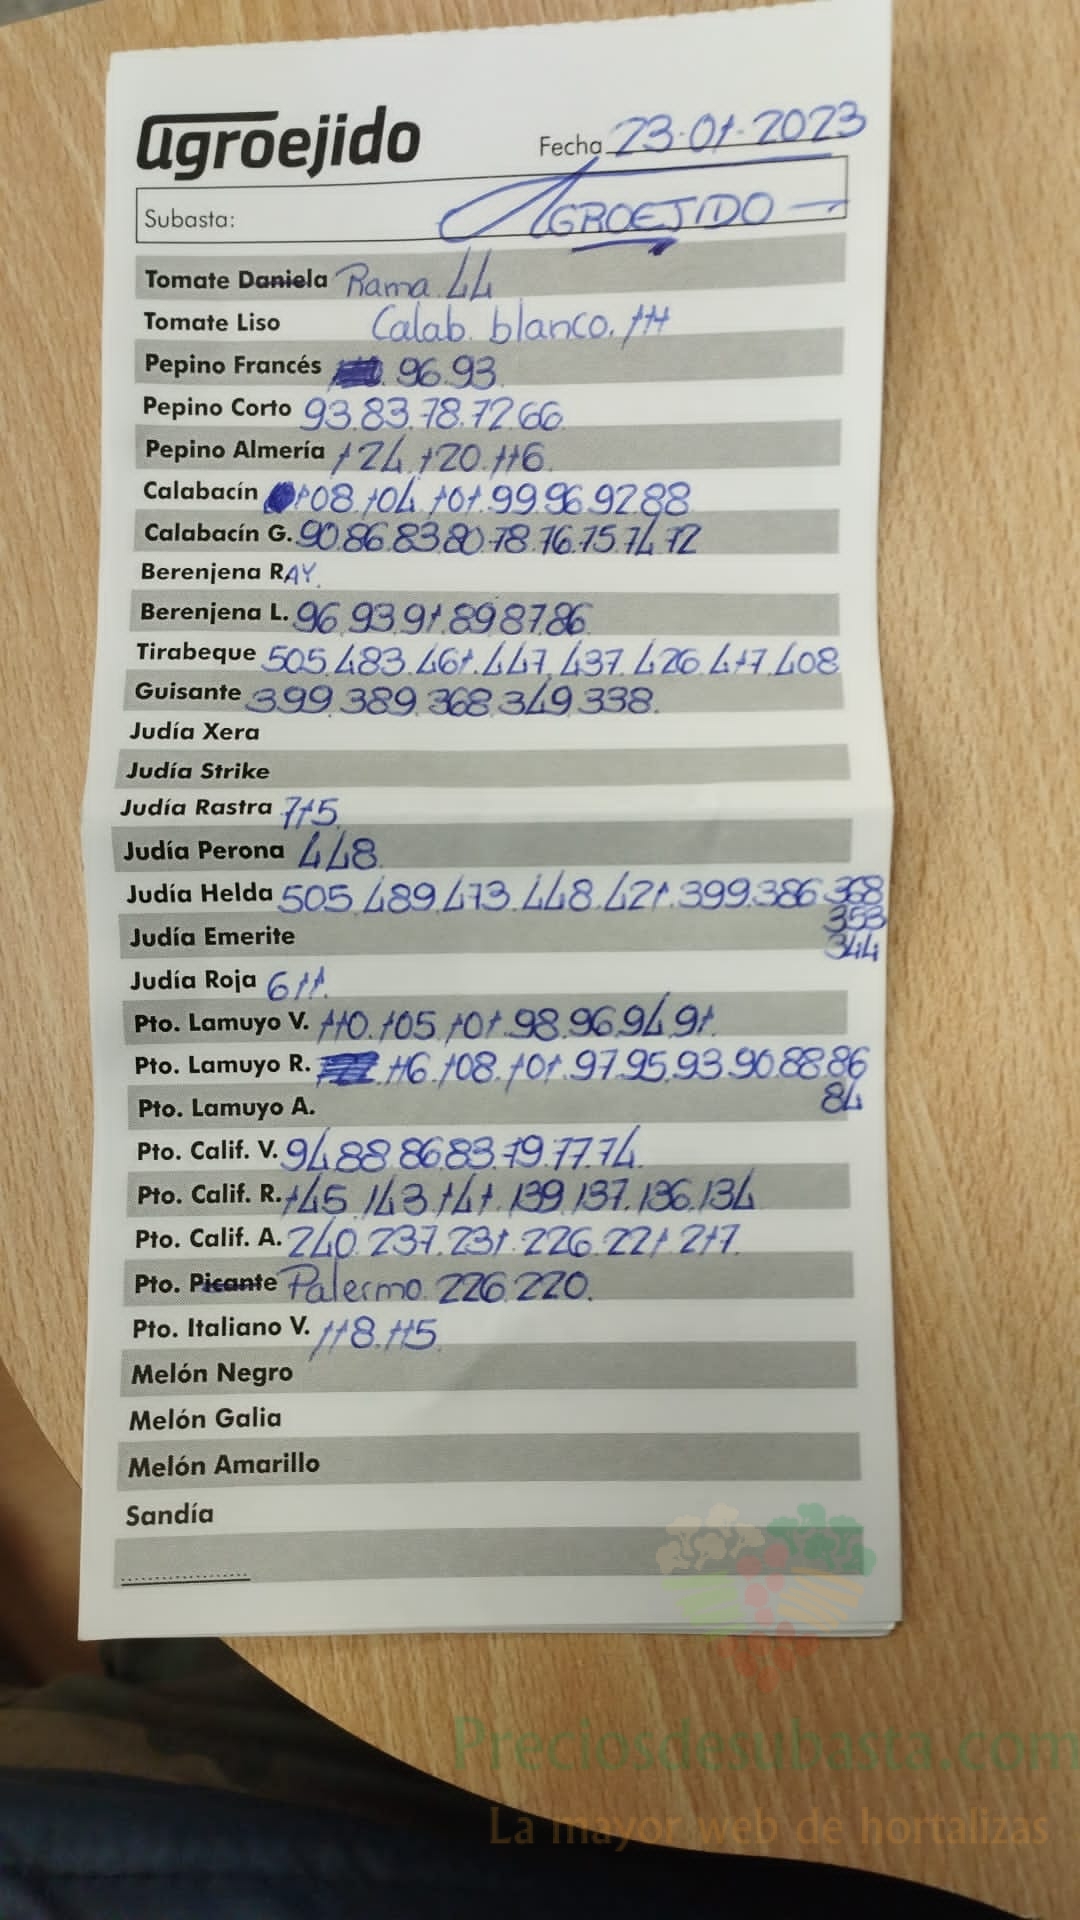 agroejido
Fecha 23-01-2023
Subasta: AGROEJIDO
Tomate Daniela Rama 44
Tomate Liso Calab. blanco. 111
Pepino Francés 96.93
Pepino Corto 93.83.78.72.66
Pepino Almería 124.120.116
Calabacín 108.104.101.99.96.92.88
Calabacín G. 90.86.83.80.78.76.75.74.72
Berenjena RAY.
Berenjena L. 96.93.91.89.87.86
Tirabeque 505.483.461.447.437.426.417.408
Guisante 399.389.368.349.338.
Judía Xera
Judía Strike
Judía Rastra 715.
Judía Perona 448.
Judía Helda 505.489.473.448.421.399.386.368
353
Judía Emerite 344
Judía Roja 611.
Pto. Lamuyo V. 110.105.101.98.96.94.91.
Pto. Lamuyo R. 116.108.101.97.95.93.90.88.86
Pto. Lamuyo A. 84
Pto. Calif. V. 94.88.86.83.79.77.74.
Pto. Calif. R. 145.143.141.139.137.136.134
Pto. Calif. A. 240.237.231.226.221.217.
Pto. Picante Palermo 226.220.
Pto. Italiano V. 118.115.
Melón Negro
Melón Galia
Melón Amarillo
Sandía
Preciosdesubasta.com
La mayor web de hortalizas